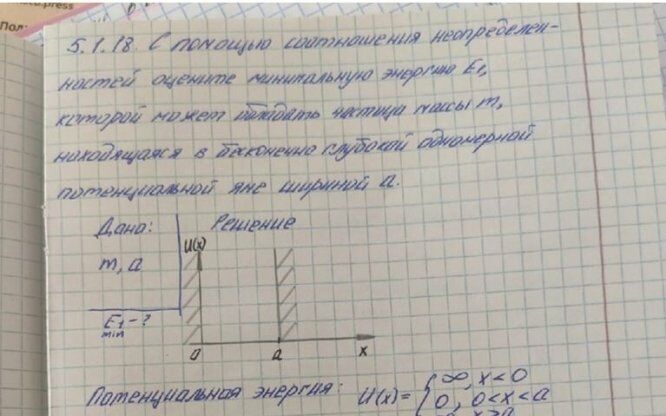 press
Пол:
5.1.18. С помощью соотношения неопределен-
ностей оцените минимальную энергию E1,
которой может обладать частица массы m,
находящаяся в бесконечно глубокой одномерной
потенциальной яме шириной a.
Дано: Решение
m, a
E1 - ?
min
U(x)
0 a x
Потенциальная энергия: U(x) = { ∞, x < 0
0, 0 < x < a
x > a